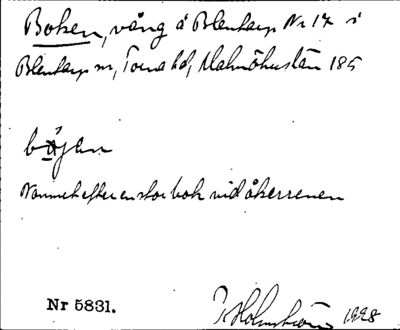 Boken, vång å Blentarp Nr 17 i
Blentarp sn, Torna hd, Malmöhus län 185
bɑ̊jen
Namnet efter en stor bok vid åkerrenen
Nr 5831.
Holmström 1928